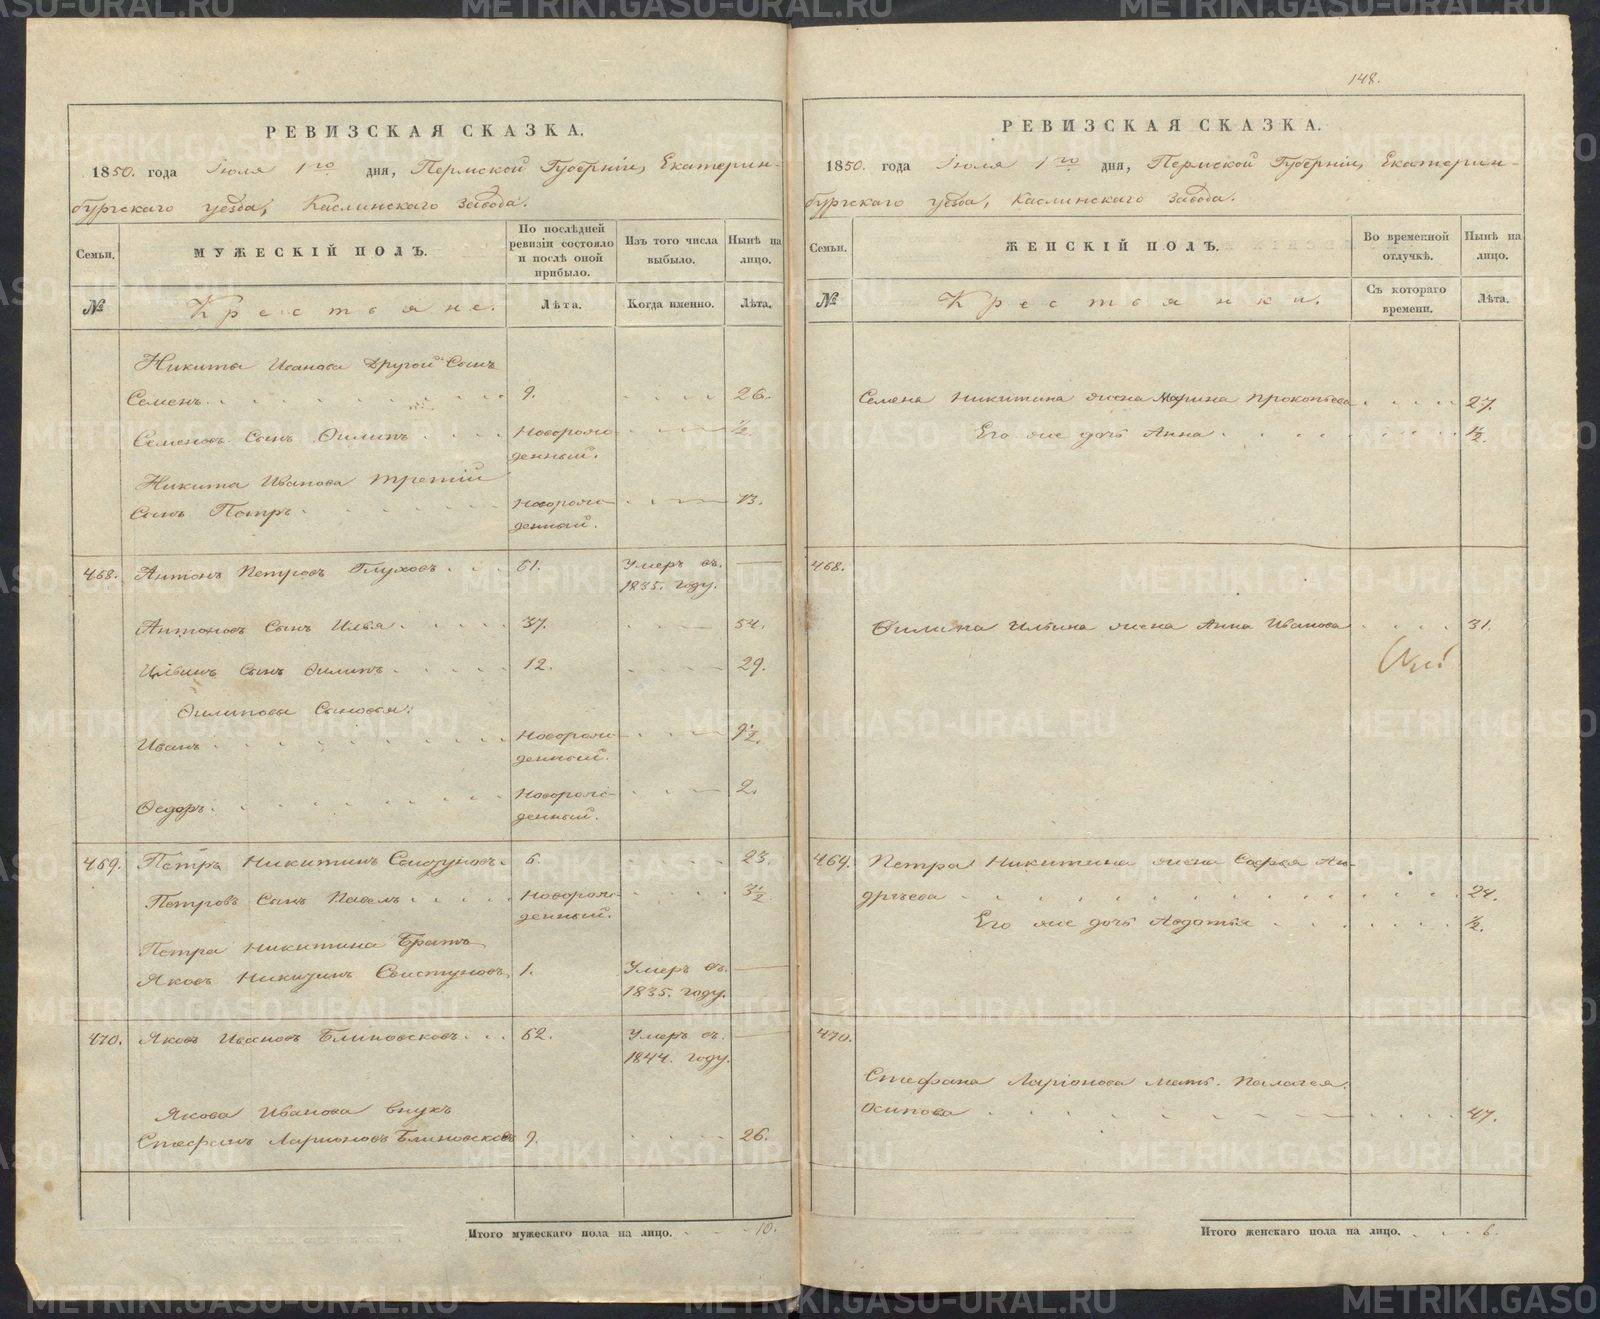 148.
РЕВИЗСКАЯ СКАЗКА.
1850. года Іюля 1го дня, Пермской Губерніи, Екатерин-
бургскаго уезда, Каслинскаго Завода.
Семьи.
МУЖЕСКІЙ ПОЛЪ.
По послѣдней
ревизіи состояло
и послѣ оной
прибыло.
Изъ того числа
выбыло.
Нынѣ на
лицо.
№
Крестьяне.
Лѣта.
Когда именно.
Лѣта.
Никиты Иванова Другой Сынъ
Семенъ. 9. 26.
Семеновъ Сынъ Филипъ Новорож- ½.
денный.
Никиты Иванова третій
Сынъ Петръ. Новорож- 13.
денный.
468. Антонъ Петровъ Глуховъ. 61. Умеръ въ
1835. году.
Антоновъ Сынъ Илья. 37. 54.
Ильинъ Сынъ Филипъ. 12. 29.
Филипова Сыновья:
Иванъ Новорож- 9½.
денный.
Федоръ. Новорож- 2.
денный.
469. Петръ Никитинъ Свистуновъ. 6. 23.
Петровъ Сынъ Павелъ Новорож- 3½
денный.
Петра Никитина Братъ
Яковъ Никитинъ Свистуновъ, 1. Умеръ въ
1835. году.
470. Яковъ Ивановъ Блиновсковъ. 62. Умеръ въ
1844. году.
Якова Иванова внукъ
Стефанъ Ларионовъ Блиновсковъ 9. 26.
Итого мужескаго пола на лицо. 10.
РЕВИЗСКАЯ СКАЗКА.
1850. года Іюля 1го дня, Пермской Губерніи, Екатерин-
бургскаго уезда, Каслинскаго Завода.
Семьи.
ЖЕНСКІЙ ПОЛЪ.
Во временной
отлучкѣ.
Нынѣ на
лицо.
№
Крестьянки.
Съ котораго
времени.
Лѣта.
Семена Никитина жена Марина Прокопьева 27.
Его же дочь Анна. ½.
468.
Филипа Ильина жена Анна Иванова 31.
469. Петра Никитина жена Софья Ан-
дрѣева 24.
Его же дочь Авдотья ½.
470.
Стефана Ларіонова мать. Палагея
Осипова 47.
Итого женскаго пола на лицо. 6.
METRIKI.GASO-URAL.RU